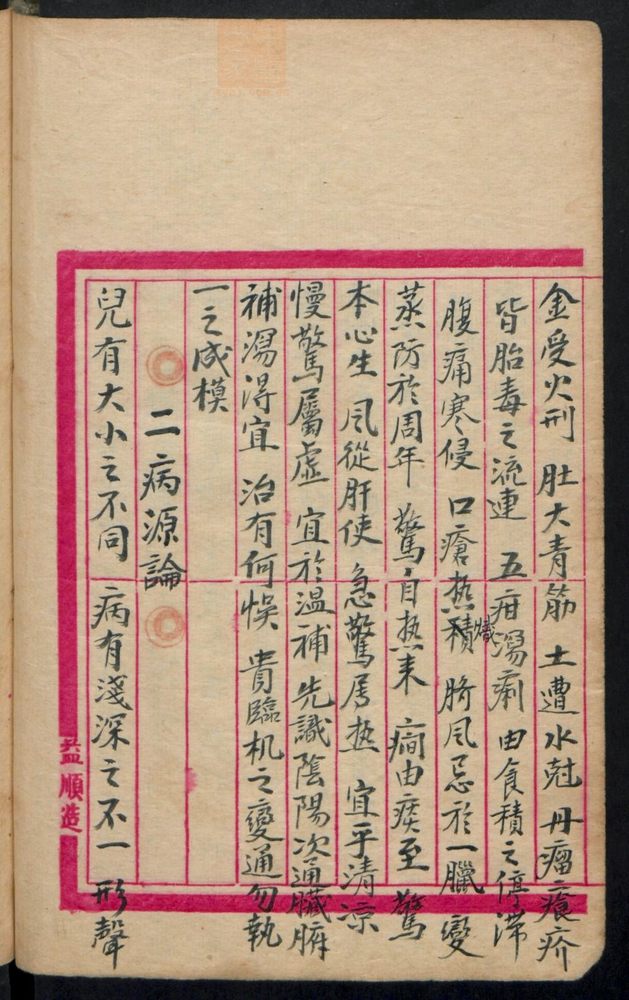 金受火刑 肚大青筋 土遭水尅 丹瘤癮疥
皆胎毒之流連 五疳瀉痢 由食積之停滯
腹痛寒侵 口瘡热積 熾 臍风忌於一臘 變
蒸防於周年 驚自热来 癇由痰至 驚
本心生 风從肝使 急驚属热 宜乎清凉
慢驚屬虛 宜於溫補 先識陰陽次通臟腑
補瀉得宜 治有何悮 貴臨机之變通勿執
一之成模
二病源論
兒有大小之不同 病有淺深之不一 形聲
益順造